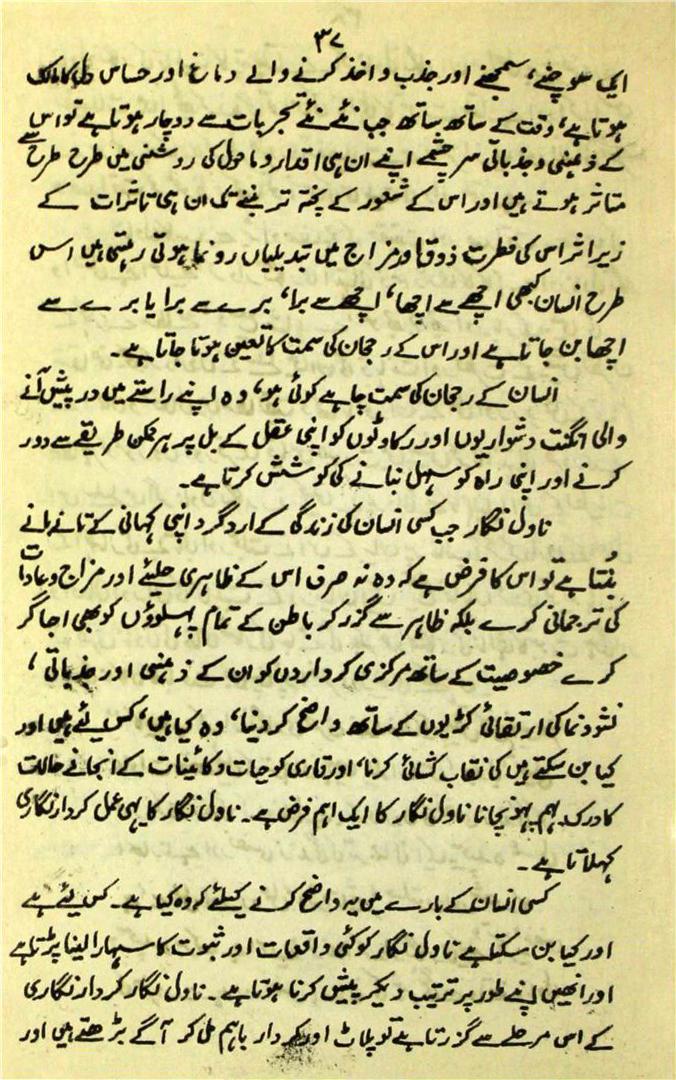 ۳۷
ایک سوچنے، سمجھنے اور جذب و اخذ کرنے والے دماغ اور حساس دل کا مالک
ہوتا ہے، وقت کے ساتھ ساتھ جب نئے نئے تجربات سے دوچار ہوتا ہے تو اس
کے ذہنی و جذباتی سرچشمے اپنے ان ہی اقدار و ماحول کی روشنی میں طرح طرح سے
متاثر ہوتے ہیں اور اس کے شعور کے پختہ تر بننے تک ان ہی تاثرات کے
زیر اثر اس کی فطرت ذوق و مزاج میں تبدیلیاں رونما ہوتی رہتی ہیں اس
طرح انسان کبھی اچھے سے اچھا، اچھے سے برا، برے سے برا یا برے سے
اچھا بن جاتا ہے اور اس کے رجحان کی سمت کا تعین ہوتا جاتا ہے۔
انسان کے رجحان کی سمت چاہے کوئی ہو، وہ اپنے راستے میں در پیش آنے
والی انگنت دشواریوں اور رکاوٹوں کو اپنی عقل کے بل پر ہر ممکن طریقے سے دور
کرنے اور اپنی راہ کو سہل بنانے کی کوشش کرتا ہے۔
ناول نگار جب کسی انسان کی زندگی کے ارد گرد اپنی کہانی کے تانے بانے
بُنتا ہے تو اس کا فرض ہے کہ وہ نہ صرف اس کے ظاہری حلیئے اور مزاج و عادات
کی ترجمانی کرے بلکہ ظاہر سے گزر کر باطن کے تمام پہلوؤں کو بھی اجاگر
کرے خصوصیت کے ساتھ مرکزی کرداروں کو ان کے ذہنی اور جذباتی،
نشوونما کی ارتقائی کڑیوں کے ساتھ واضح کر دینا، وہ کیا ہیں، کس لئے ہیں اور
کیا بن سکتے ہیں کی نقاب کشائی کرنا، اور قاری کو حیات و کائینات کے انجانے حالات
کا درک بہم پہونچانا ناول نگار کا ایک اہم فرض ہے۔ ناول نگار کا یہی عمل کردار نگاری
کہلاتا ہے۔
کسی انسان کے بارے میں یہ واضح کرنے کیلئے کہ وہ کیا ہے۔ کس لئے ہے
اور کیا بن سکتا ہے ناول نگار کو کئی واقعات اور ثبوت کا سہارا لینا پڑتا ہے
اور انھیں اپنے طور پر ترتیب دیکر پیش کرنا ہوتا ہے۔ ناول نگار کردار نگاری
کے اس مرحلے سے گزرتا ہے تو پلاٹ اور کردار باہم مل کر آگے بڑھتے ہیں اور